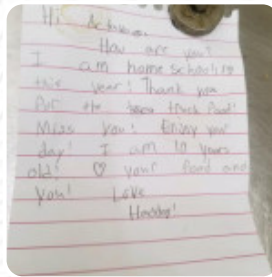 Hi
How are you!
I am home schooling
this year! Thank you
for the taco truck food!
Miss you! Enjoy your
day! I am 10 years
old! ♡ your food and
you! Love